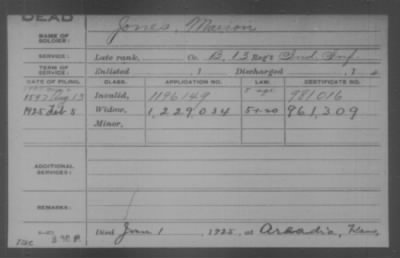 DEAD
NAME OF SOLDIER: Jones, Marion
SERVICE: Late rank, Co. B, 13 Reg't Ind. Inf.
TERM OF SERVICE: Enlisted 1 Discharged , 1
DATE OF FILING. CLASS. APPLICATION NO. LAW. CERTIFICATE NO.
1897 Aug 13 Invalid, 1196149 981016
1925 Feb 5 Widow, 1,229,034 961,309
Minor,
ADDITIONAL SERVICES:
REMARKS:
Died Jan 1, 1925, at Arcadia, Kans,